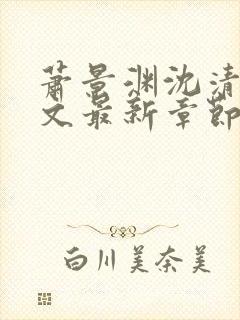 萧景渊沈清
文最新章節
白川美奈美